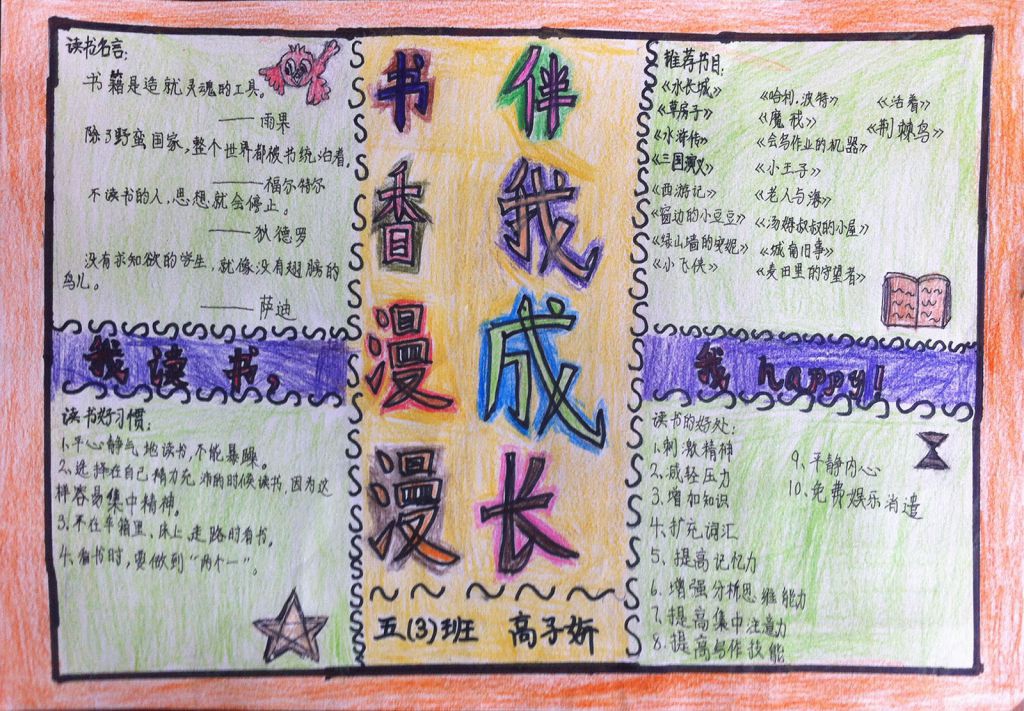 读书名言:
书籍是造就灵魂的工具。
——雨果
除了野蛮国家,整个世界都被书统治着。
——福尔特尔
不读书的人,思想就会停止。
——狄德罗
没有求知欲的学生,就像没有翅膀的
鸟儿。
——萨迪
我读书,
读书好习惯:
1、平心静气地读书,不能暴躁。
2、选择在自己精力充沛的时候读书,因为这
样容易集中精神。
3、不在车箱里、床上、走路时看书。
4、看书时,要做到“两个一”。
书香漫漫
伴我成长
五(3)班 高子妡
推荐书目:
《水长城》
《草房子》
《水浒传》
《三国演义》
《西游记》
《窗边的小豆豆》
《绿山墙的安妮》
《小飞侠》
《哈利.波特》
《魔戒》
《会写作业的机器》
《小王子》
《老人与海》
《汤姆叔叔的小屋》
《城南旧事》
《麦田里的守望者》
《活着》
《荆棘鸟》
我 happy!
读书的好处:
1、刺激精神
2、减轻压力
3、增加知识
4、扩充词汇
5、提高记忆力
6、增强分析思维能力
7、提高集中注意力
8、提高写作技能
9、平静内心
10、免费娱乐消遣